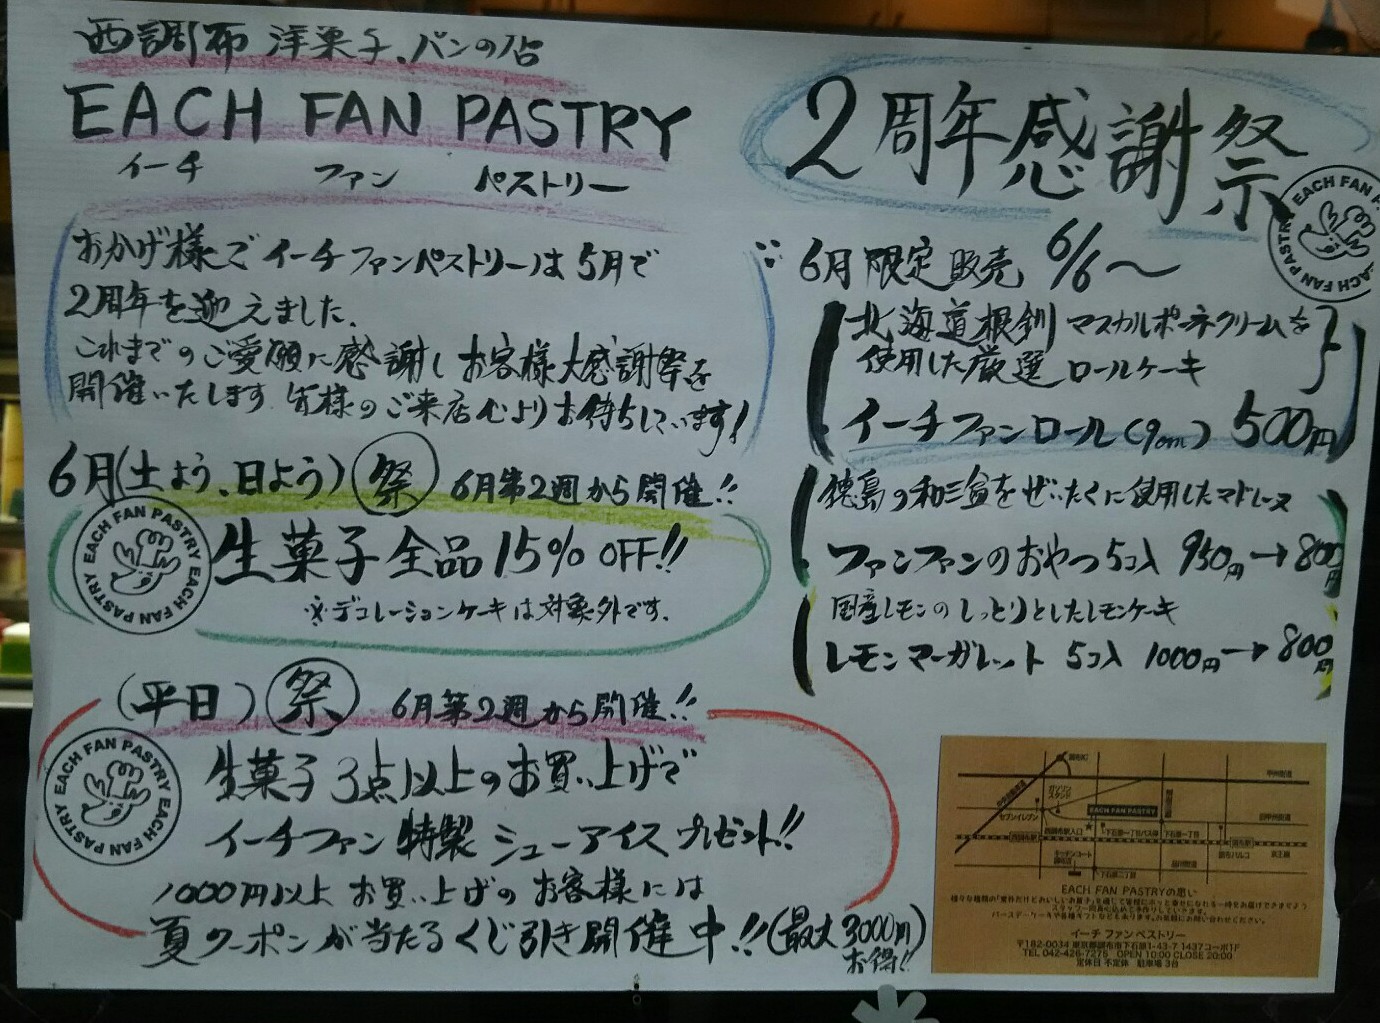 西調布 洋菓子、パンの店
EACH FAN PASTRY
イーチ ファン ペストリー
おかげ様でイーチファンペストリーは5月で
2周年を迎えました。
これまでのご愛顧に感謝しお客様大感謝祭を
開催いたします 皆様のご来店心よりお待ちしています!
6月(土よう、日よう) 祭 6月第2週から開催!!
EACH FAN PASTRY EACH FAN PASTRY
生菓子全品15% OFF!!
※デコレーションケーキは対象外です。
(平日) 祭 6月第2週から開催!!
EACH FAN PASTRY EACH FAN PASTRY
生菓子3点以上のお買い上げで
イーチファン特製シューアイスプレゼント!!
1000円以上お買い上げのお客様には
夏クーポンが当たるくじ引き開催中!!(最大3000円)
お得!!
2周年感謝祭
EACH FAN PASTRY EACH FAN P
6月限定販売 6/6〜
北海道根釧マスカルポーネクリームを
使用した厳選ロールケーキ
イーチファンロール(9cm) 500円
徳島の和三盆をぜいたくに使用したマドレーヌ
ファンファンのおやつ5コ入 950円→800円
国産レモンのしっとりとしたレモンケーキ
レモンマーガレット 5コ入 1000円→800円
甲州街道
セブンイレブン
EACH FAN PASTRY
旧甲州街道
西調布駅
西調布駅入口
下石原一丁目
調布駅
調布パルコ
京王線
品川街道
下石原二丁目
EACH FAN PASTRYの思い
イーチ ファン ペストリー
〒182-0034 東京都調布市下石原1-43-7 1437コーポ1F
TEL 042-426-7275 OPEN 10:00 CLOSE 20:00
定休日 不定休 駐車場 3台